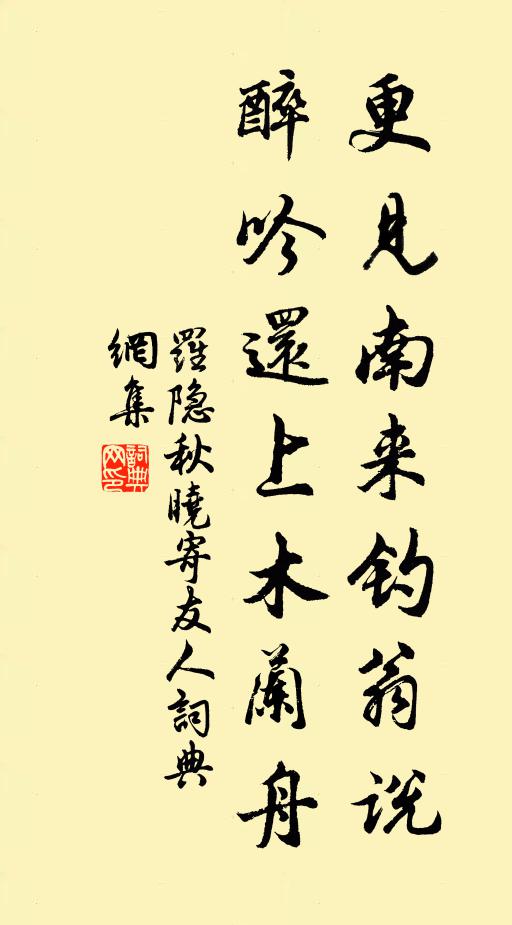 更見南来釣翁説
醉吟還上木蘭舟
羅隐秋曉寄友人詞典
網集
詞典网印